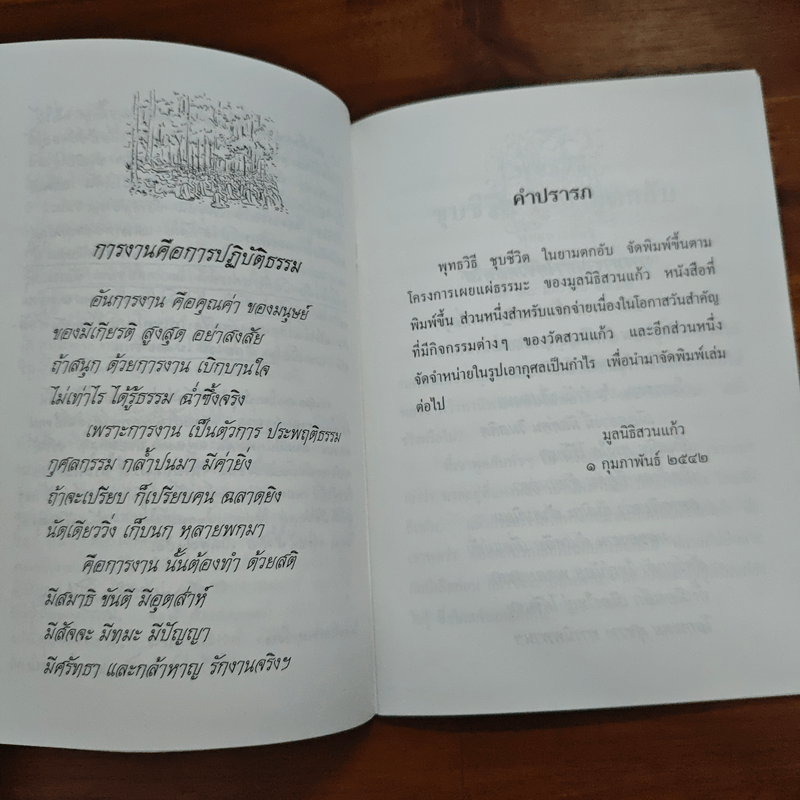 การงานคือการปฏิบัติธรรม
อันการงาน คือคุณค่า ของมนุษย์
ของมีเกียรติ สูงสุด อย่าสงสัย
ถ้าสนุก ด้วยการงาน เบิกบานใจ
ไม่เท่าไร ได้รู้ธรรม ฉ่ำซึ้งจริง
เพราะการงาน เป็นตัวการ ประพฤติธรรม
กุศลกรรม กล้ำปนมา มีค่ายิ่ง
ถ้าจะเปรียบ ก็เปรียบคน ฉลาดยิง
นัดเดียววิ่ง เก็บนก หลายพกมา
คือการงาน นั้นต้องทำ ด้วยสติ
มีสมาธิ ขันตี มีอุตส่าห์
มีสัจจะ มีทมะ มีปัญญา
มีศรัทธา และกล้าหาญ รักงานจริงฯ
คำปรารภ
พุทธวิธี ชุบชีวิต ในยามตกอับ จัดพิมพ์ขึ้นตาม
โครงการเผยแผ่ธรรมะ ของมูลนิธิสวนแก้ว หนังสือที่
พิมพ์ขึ้น ส่วนหนึ่งสำหรับแจกจ่ายเนื่องในโอกาสวันสำคัญ
ที่มีกิจกรรมต่างๆ ของวัดสวนแก้ว และอีกส่วนหนึ่ง
จัดจำหน่ายในรูปเอากุศลเป็นกำไร เพื่อนำมาจัดพิมพ์เล่ม
ต่อไป
มูลนิธิสวนแก้ว
๑ กุมภาพันธ์ ๒๕๔๒